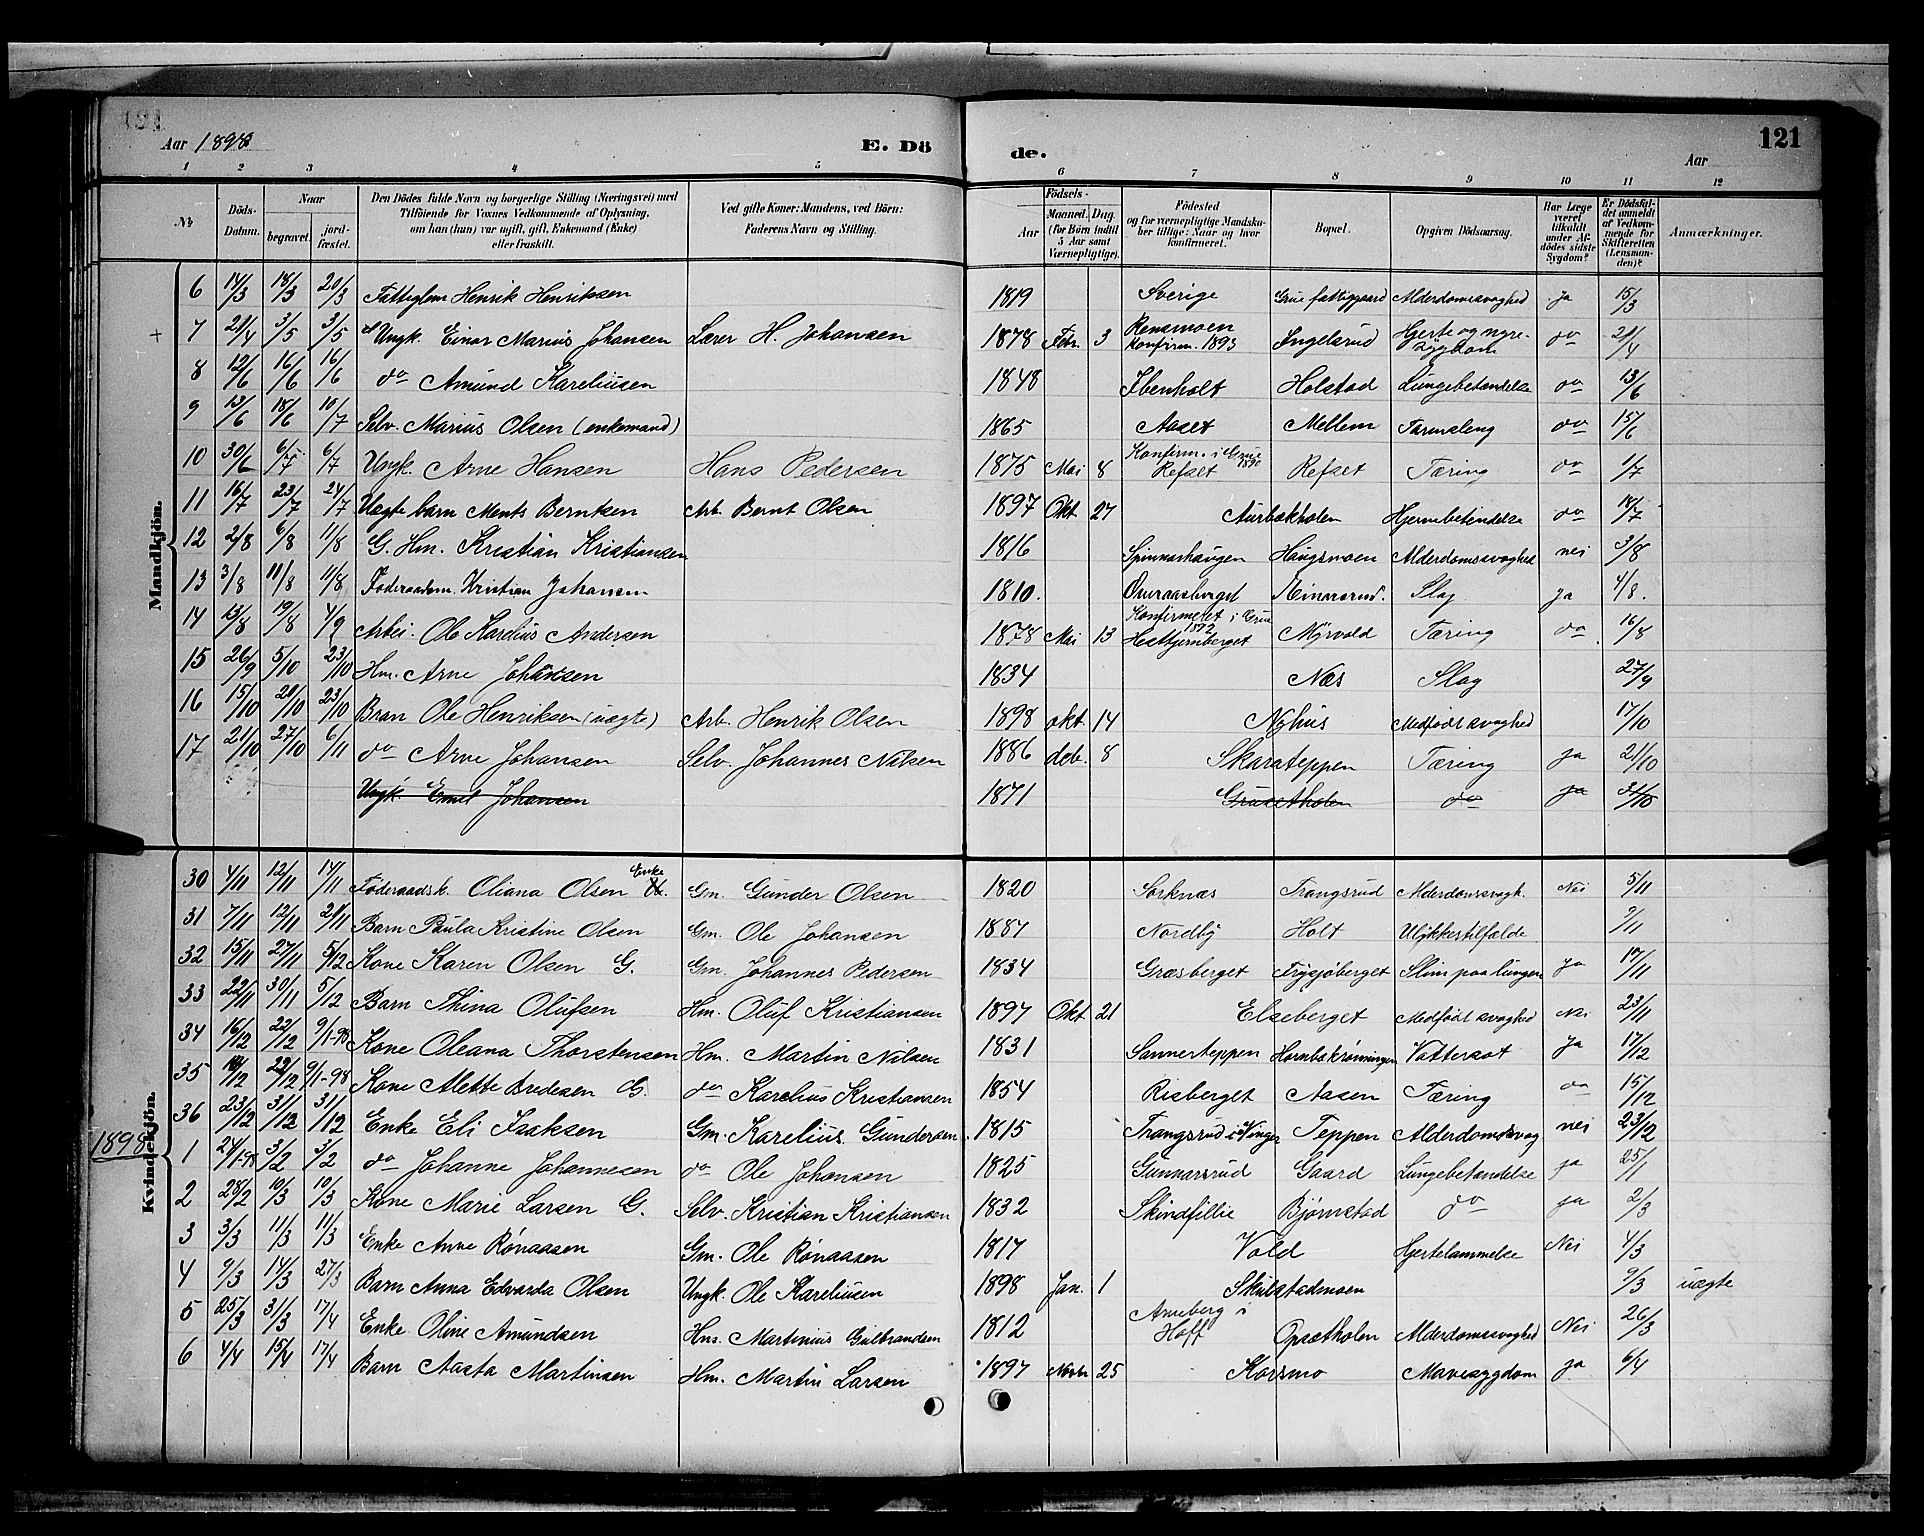 Aar 1898 E. Dö de. Aar 121
1 2 3 4 5 6 7 8 9 10 11 12
№ Döds-Datum. Naar begravet. jord-fæstet. Den Dödes fulde Navn og borgerlige Stilling (Næringsvei) med Tilföiende for Voxnes Vedkommende af Oplysning, om han (hun) var ugift, gift, Enkemand (Enke) eller fraskilt. Ved gifte Koner: Mandens, ved Börn: Faderens Navn og Stilling. Födsels- Aar Maaned. Dag. (for Börn indtil 5 Aar samt Værnepligtige). Födested og for værnepligtige Mandskaber tillige: Naar og hvor konfirmeret. Bopæl. Opgiven Dödsaarsag. Har Læge været tilkaldt under Afdödes sidste Sygdom? Er Dödsfaldet anmeldt af Vedkommende for Skifteretten (Lensmanden)? Anmærkninger.
Mandkjön.
6 14/3 18/3 20/3 Fattiglem Henrik Henriksen 1819 Sverige Grue fattiggaard Alderdomssvaghed ja 15/3
+ 7 21/4 3/5 3/5 Ungk. Einar Marius Johansen Lærer H. Johansen 1878 Febr. 3 Rensmoen Konfirm. 1893 Ingelsrud Hjerte og nyresygdom do 21/4
8 12/6 16/6 16/6 do Amund Kareliusen 1848 Ibenholt Holstad Lungebetændelse do 13/6
9 13/6 18/6 10/7 Selv. Marius Olsen (enkemand) 1865 Aaset Mellem Tarmslyng do 15/6
10 30/6 6/7 6/7 Ungk. Arne Hansen Hans Pedersen 1875 Mai 8 Konfirm. i Grue 1890 Refset Refset Tæring do 1/7
11 16/7 23/7 24/7 Uægte barn Ments Berntsen Arb. Bernt Olsen 1897 Okt. 27 Aurbækholen Hjernebetændelse do 18/7
12 2/8 6/8 11/8 G. Hm. Kristian Kristiansen 1816 Spinnarhaugen Haugsmoen Alderdomssvaghed nei 3/8
13 3/8 11/8 11/8 Föderaadsm. Kristian Johansen 1810. Overaasberget Einarsrud. Slag ja 4/8.
14 13/8 19/8 4/9 Arbei. Ole Karelius Andersen 1878 Mai 13 Konfirmeret i Grue 1892 Hestbjernberget Myrvold Tæring do 16/8
15 26/9 5/10 23/10 Hm. Arne Johansen 1834 Næs Slag 27/9
16 15/10 20/10 23/10 Bran Ole Henriksen (uægte) Arb. Henrik Olsen 1898 okt. 14 Nyhus Medfödt svaghed 17/10
17 21/10 27/10 6/11 do Arne Johansen Selv. Johannes Nilsen 1886 deb. 8 Skarateppen Tæring ja 21/10
Ungk. Emil Johansen 1871 Grusetholen do ja 31/10
Kvindekjön.
30 4/11 12/11 14/11 Föderaadsk. Oliana Olsen Enke Gm. Gunder Olsen 1820 Sorknæs Trangsrud Alderdomssvagh. Nei 5/11
31 7/11 12/11 21/11 Barn Paula Kristine Olsen Gm. Ole Johansen 1887 Nordby Holt Ulykkestilfælde 9/11
32 15/11 27/11 5/12 Kone Karen Olsen G. Gm. Johannes Pedersen 1834 Græsberget Frysjöberget Slim paa lungen Ja 17/11
33 22/11 30/11 5/12 Barn Thina Olufsen Hm. Oluf Kristiansen 1897 Okt 21 Elseberget Medfödt svaghed Nei 23/11
34 16/12 22/12 9/1-98 Kone Oleana Thorstensen Hm. Martin Nilsen 1831 Sannerteppen Hornbækrönningen Vattersot Ja 17/12
35 14/12 22/12 9/1-98 Kone Alette Bredesen G. do Karelius Kristiansen 1854 Risberget Aasen Tæring do 15/12
36 23/12 31/12 31/12 Enke Eli Isaksen Gm. Karelius Gundersen 1815 Trangsrud i Vinger Teppen Alderdomssvag nei 23/12
1898 1 24/1-98 3/2 3/2 do Johanne Johannesen do Ole Johansen 1825 Gunnarsrud Gaard Lungebetændelse ja 25/1
2 28/2 10/3 10/3 Kone Marie Larsen G. Selv. Kristian Kristiansen 1832 Skindfillie Björnstad do ja 2/3
3 3/3 11/3 11/3 Enke Anne Rönaasen Gm. Ole Rönaasen 1817 Vold Hjertelammelse Nei 4/3
4 9/3 14/3 27/3 Barn Anna Edvarda Olsen Ungk. Ole Kareliusen 1898 Jan. 1 Skulstadmoen 9/3 uægte
5 25/3 31/3 17/4 Enke Oline Amundsen Hm. Martinius Gulbrandsen 1812 Arneberg i Hoff Opsætholen Alderdomssvaghed Nei 26/3
6 4/4 15/4 17/4 Barn Aasta Martinsen Hm. Martin Larsen 1897 Novbr 25 Korsmo Mavesygdom ja 6/4